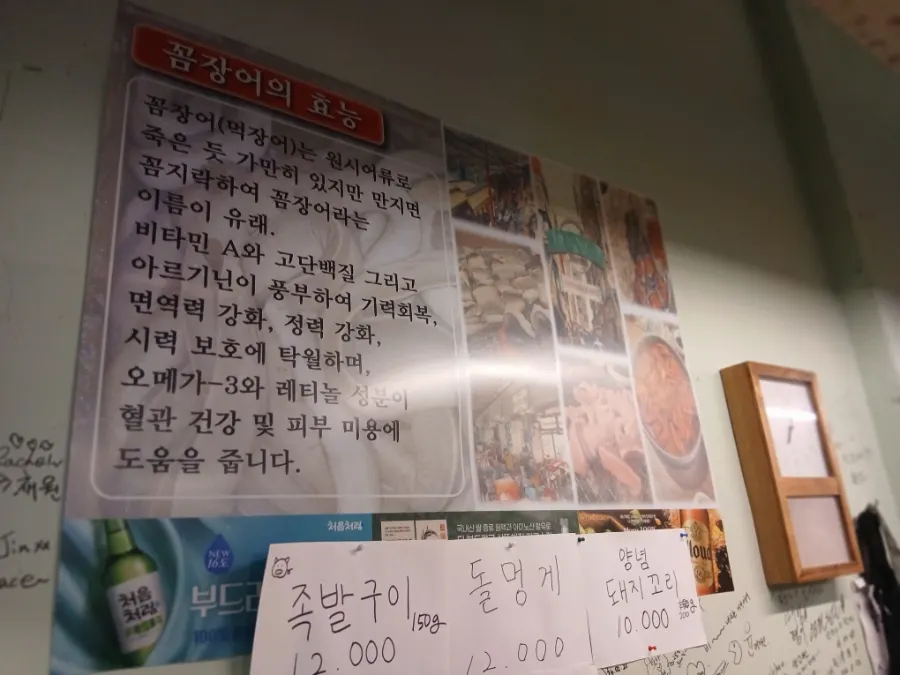 꼼장어의 효능
꼼장어(먹장어)는 원시어류로
죽은 듯 가만히 있지만 만지면
꼼지락하여 꼼장어라는
이름이 유래.
비타민 A와 고단백질 그리고
아르기닌이 풍부하여 기력회복,
면역력 강화, 정력 강화,
시력 보호에 탁월하며,
오메가-3와 레티놀 성분이
혈관 건강 및 피부 미용에
도움을 줍니다.
처음처럼
NEW
16도
부드
처음
처럼
족발구이 150g
12.000
돌멍게
12.000
양념
돼지꼬리
10.000 200g